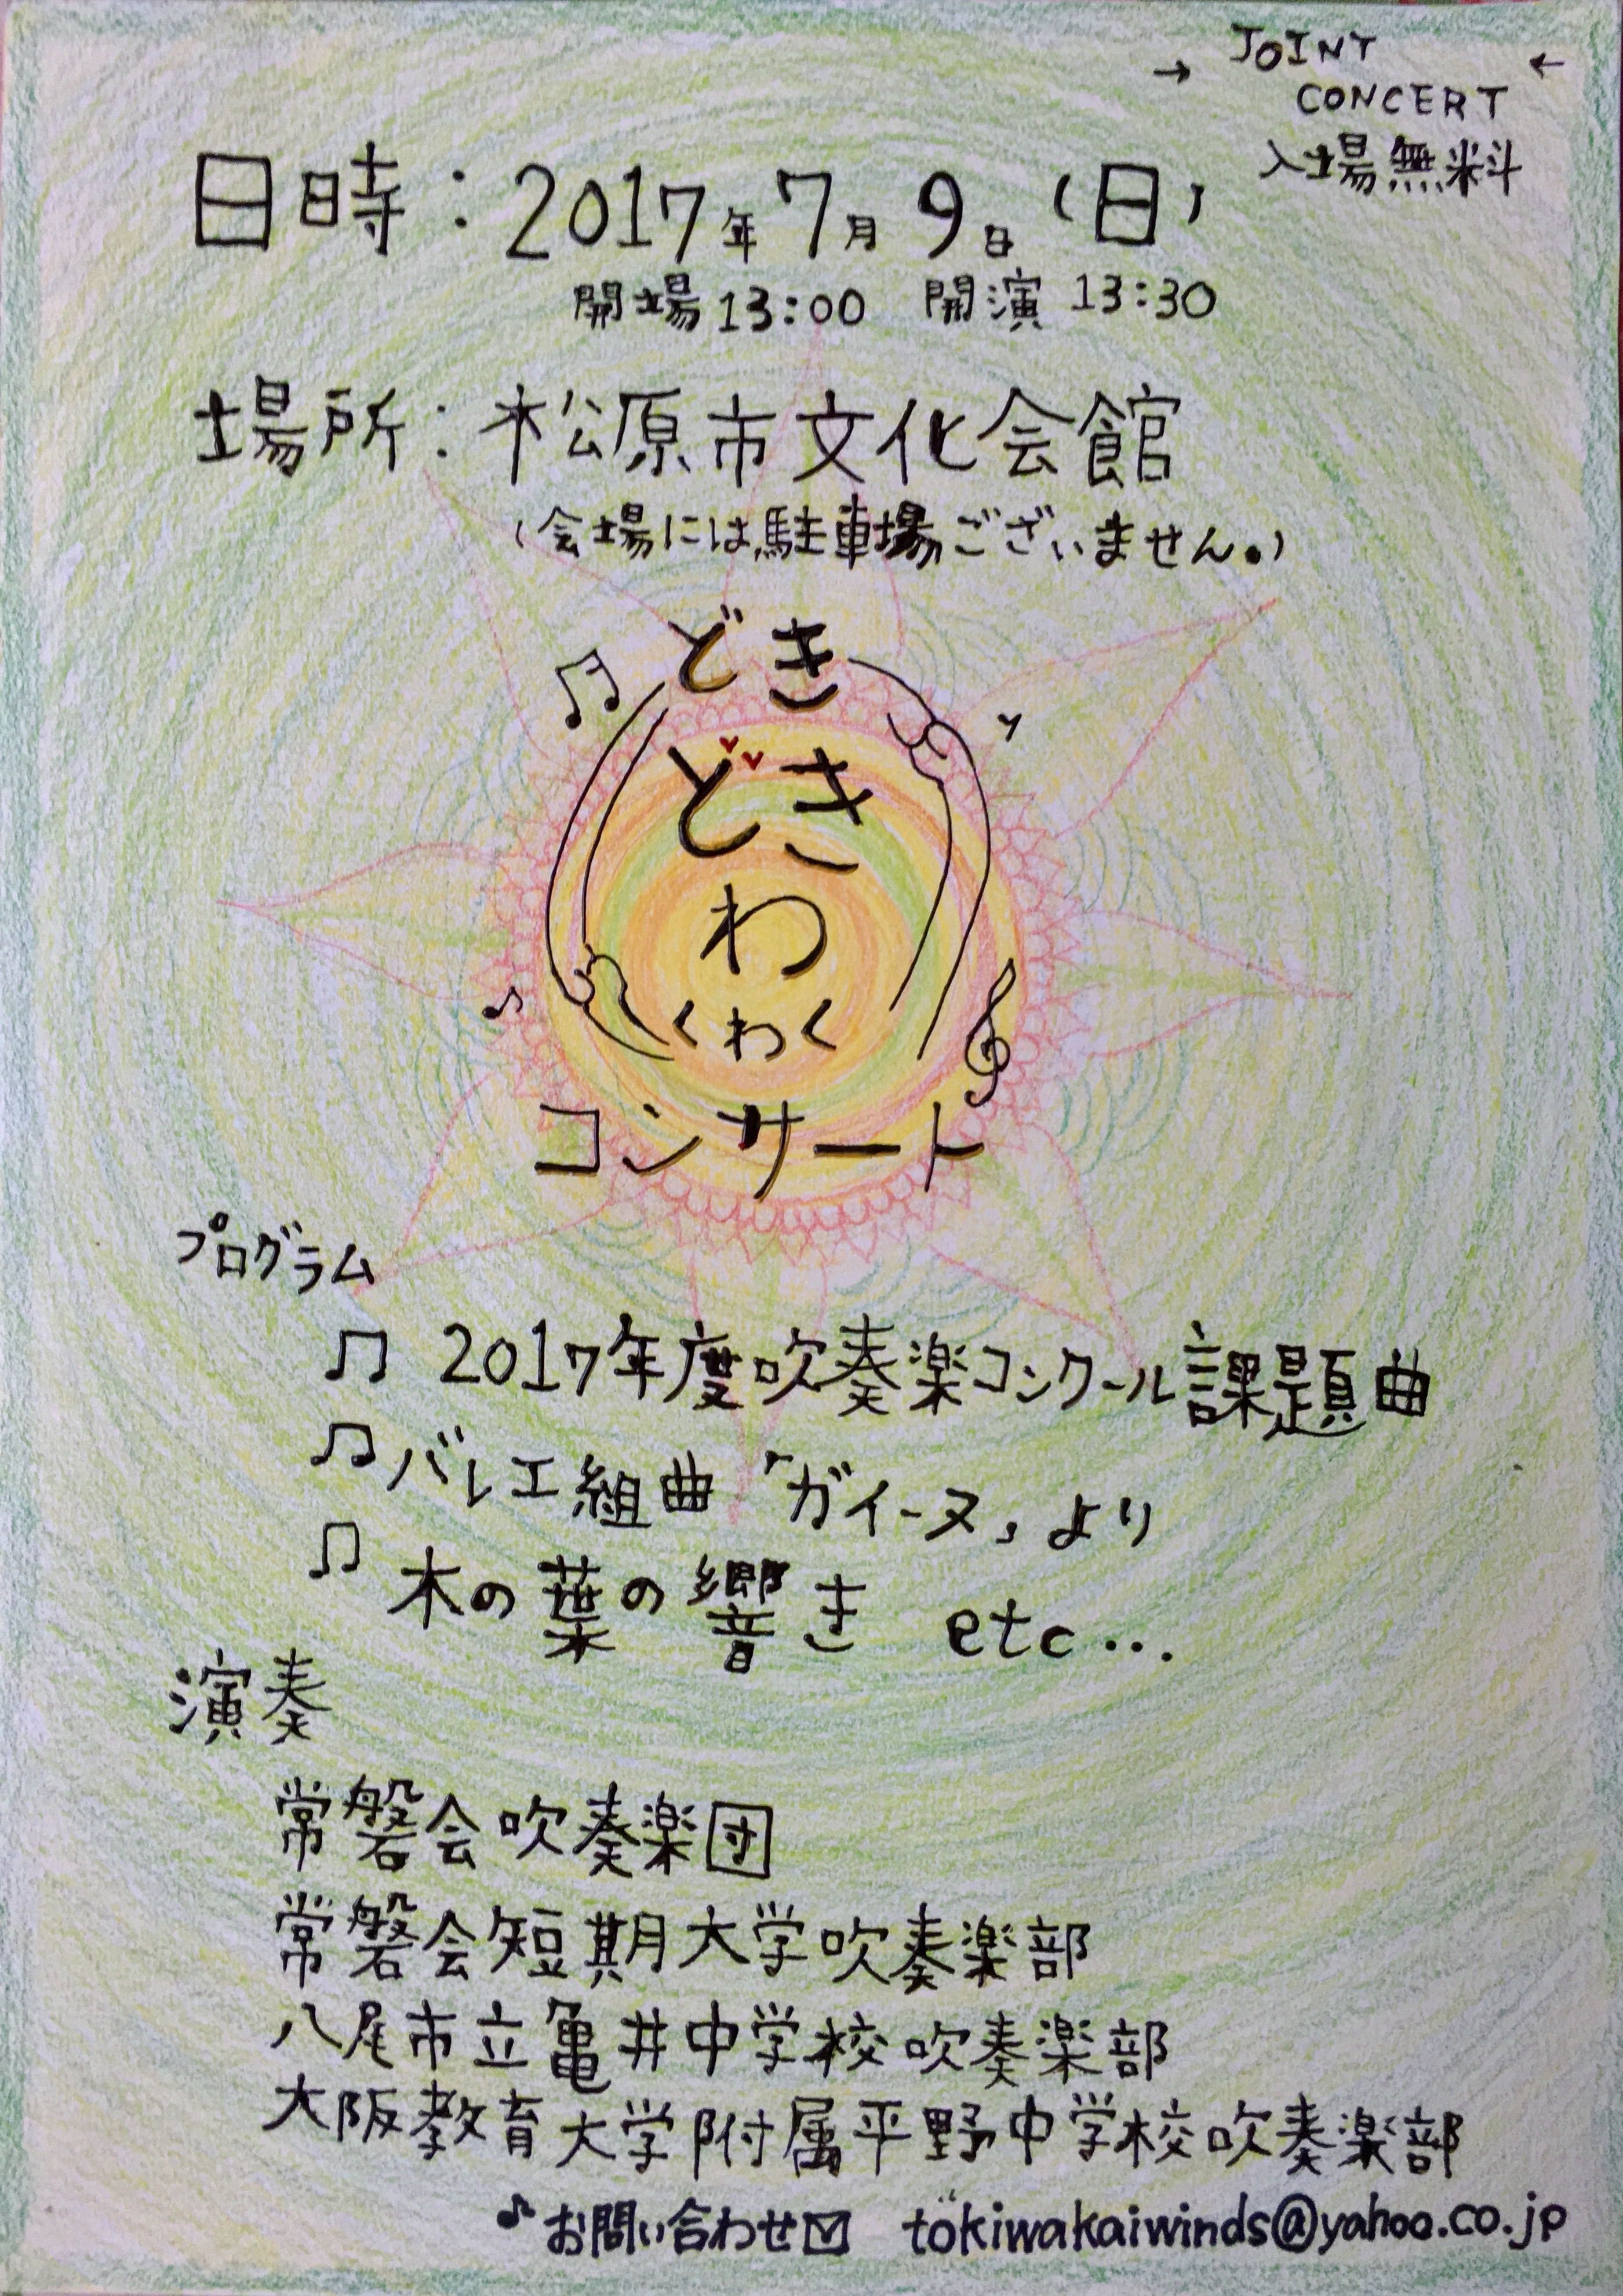 → JOINT ←
CONCERT
入場無料
日時：2017年7月9日（日）
開場13:00 開演 13:30
場所：松原市文化会館
（会場には駐車場ございません。）
どき
どき
わ
くわく
コンサート
プログラム
♫ 2017年度吹奏楽コンクール課題曲
♫ バレエ組曲「ガイーヌ」より
♫ 木の葉の響き etc…
演奏
常磐会吹奏楽団
常磐会短期大学吹奏楽部
八尾市立亀井中学校吹奏楽部
大阪教育大学附属平野中学校吹奏楽部
♪お問い合わせ✉ tokiwakaiwinds@yahoo.co.jp